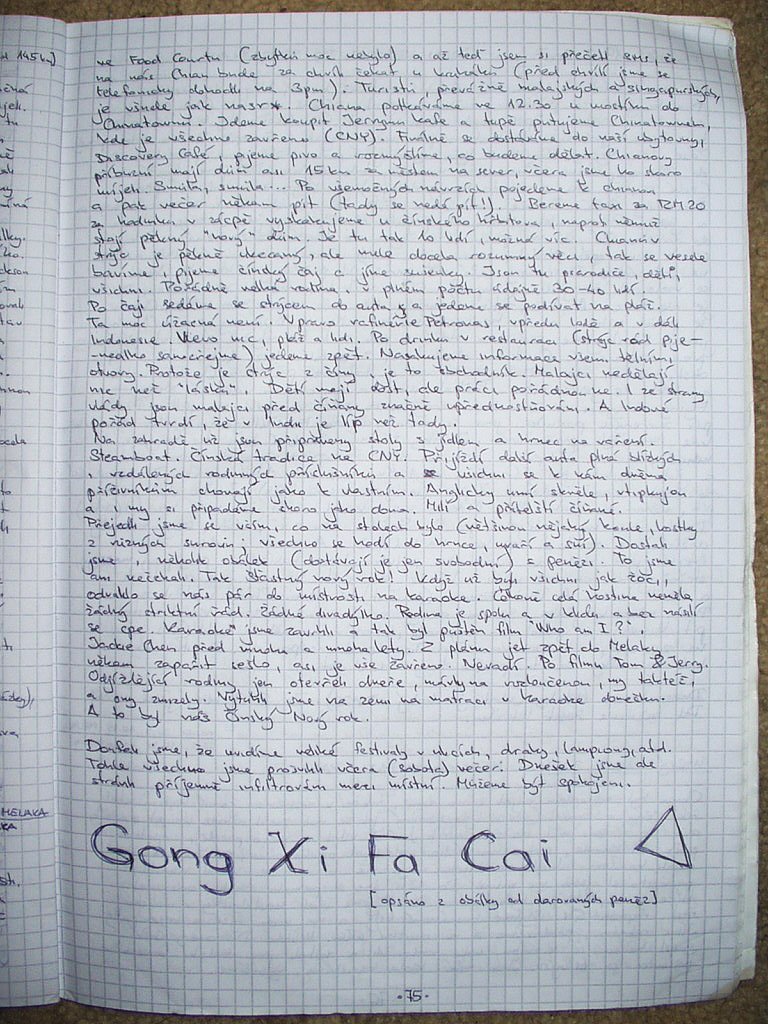 ve Food Courtu (zbytků moc nebylo) a až teď jsem si přečetl SMS, že
na nás Chian bude za chvíli čekat u kanálu (před chvílí jsme se
telefonicky dohodli na 3pm). Turistů, převážně malajských a singapurských,
je všude jak nasr*. Chiana potkáváme ve 12.30 u mostíku do
Chinatownu. Jdeme koupit Jerrymu kafe a tupě putujeme Chinatownem,
kde je všechno zavřeno (CNY). Finálně se dostáváme do naší ubytovny,
Discovery Café, pijeme pivo a rozmýšlíme, co budeme dělat. Chianovy
příbuzní mají dům asi 15km za městem na sever, včera jsme ho skoro
míjeli. Smůla, smůla... Po všemožných návrzích pojedeme k
a pak večer někam pít (tady se nedá pít!!). Bereme taxi za RM20
za hodinku v zácpě vyskakujeme u čínského hřbitova, naproti němuž
stojí pěkný "nový" dům. Je tu tak 10 lidí, možná víc. Chianův
strýc je pěkně ukecaný, ale mele docela rozumný věci, tak se vesele
bavíme, pijeme čínský čaj a jíme sušenky. Jsou tu prarodiče, děti,
všichni. Pořádně velká rodina. V plném počtu údajně 30-40 lidí.
Po čaji sedáme se strýcem do auta a jedeme se podívat na pláž.
Ta moc úžasná není. Vpravo rafinérie Petronas, vpředu lodě a v dáli
Indonésie. Vlevo nic, pláž a lidi. Po drinku v restauraci (strýc rád pije-
-nealko samozřejmě) jedeme zpět. Nasakujeme informace všemi tělními
otvory. Protože je strýc z Číny, je to obchodník. Malajci nedělají
nic než "lásku". Dětí mají dost, ale práci pořádnou ne. I ze strany
vlády jsou malajci před číňany značně upřednostňováni. A Indové
pořád tvrdí, že v Indii je líp než tady.
Na zahradě už jsou připraveny stoly s jídlem a hrnec na vaření.
Steamboat. Čínská tradice na CNY. Přijíždí další auta plná blízkých
i vzdálených rodinných příslušníků a všichni se k nám dvěma
příživníkům chovají jako k vlastním. Anglicky umí skvěle, vtipkujou
a i my si připadáme skoro jako doma. Milí a přátelští číňané.
Přejedli jsme se vším, co na stolech bylo (většinou nějaký koule, kostky
z různých surovin; všechno se hodí do hrnce, uvaří a sní). Dostali
jsme i několik obálek (dostávají je jen svobodní) s penězi. To jsme
ani nečekali. Tak šťastný nový rok! Když už byli všichni jak žoci,
odvalilo se nás pár do místnosti na karaoke. Čekaně celá hostina neměla
žádný striktní řád. Žádné divadýlko. Rodina je spolu a v klidu a bez násilí
se cpe. Karaoke jsme zavrhli a tak byl puštěn film "Who am I?",
Jackie Chan před mnoha a mnoha lety. Z plánu jet zpět do Melaky
někam zapařit sešlo, asi je vše zavřeno. Nevadí. Po filmu Tom & Jerry.
Odjíždějící rodiny jen otevřeli dveře, mávly na rozloučenou, my taktéž,
a ony zmizely. Vytuhli jsme vla zemi na matraci v karaoke domečku.
A to byl náš Čínský Nový rok.
Doufali jsme, že uvidíme veliké festivaly v ulicích, draky, lampiony, atd.
Tohle všechno jsme prošvihli včera (sobota) večer. Dnešek jsme ale
strávili příjemně infiltrováni mezi místní. Můžeme být spokojeni.
Gong Xi Fa Cai
[opsáno z obálky od darovaných peněz]
-75-
145km]
MELAKA